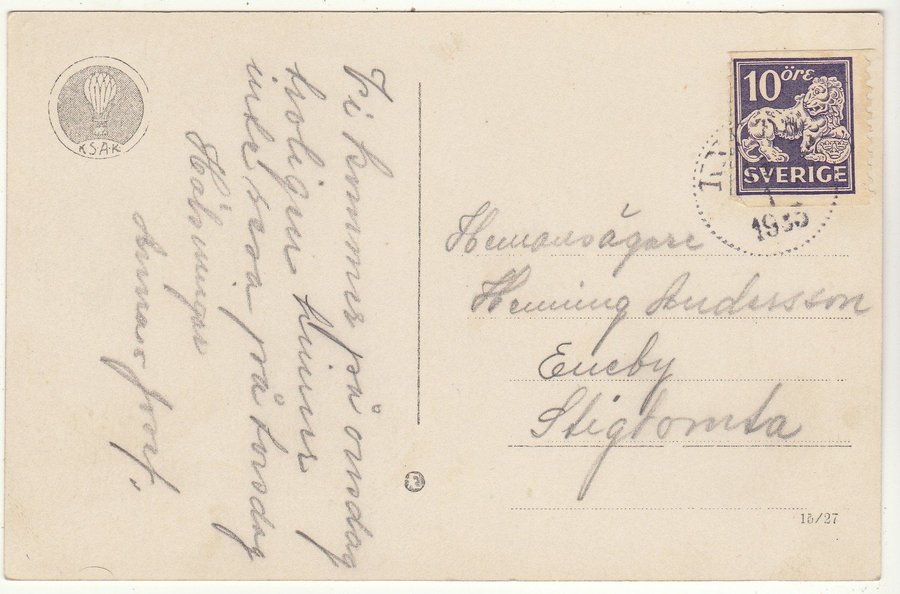 KSAK
Vi kommer på onsdag
troligen hinner
inte resa på torsdag
Hälsningar
Anna o Josef.
10 ÖRE
SVERIGE
1935
Hemansägare
Henning Andersson
Eneby
Stigtomta
15/27